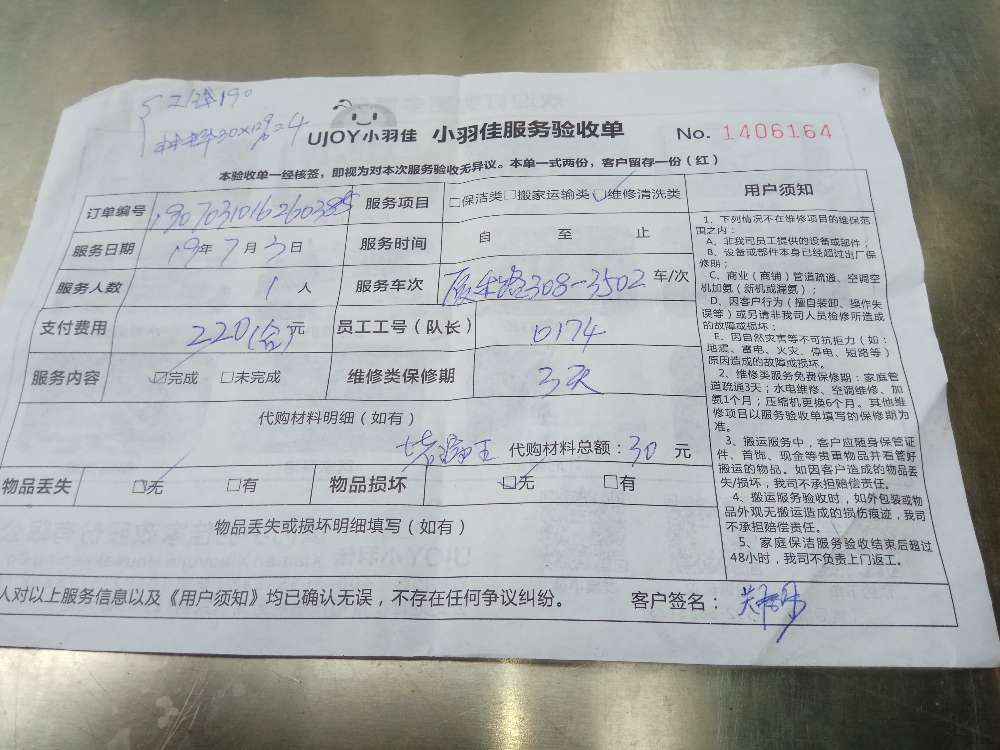 工钱190
30×12%=4
UJOY小羽佳 小羽佳服务验收单 No. 1406164
本验收单一经核签，即视为对本次服务验收无异议。本单一式两份，客户留存一份（红）
订单编号 服务项目 □保洁类□搬家运输类☑维修清洗类
服务日期 19年7月3日 服务时间 自 至 止
服务人数 1 人 服务车次 308-3502 车/次
支付费用 220(含)元 员工工号（队长） 0174
服务内容 ☑完成 □未完成 维修类保修期 3天
代购材料明细（如有）
代购材料总额：30 元
物品丢失 ☑无 □有 物品损坏 ☑无 □有
物品丢失或损坏明细填写（如有）
人对以上服务信息以及《用户须知》均已确认无误，不存在任何争议纠纷。 客户签名：
用户须知
1、下列情况不在维修项目的维保范
围之内：
A、非我司员工提供的设备或部件；
B、设备或部件本身已经超过出厂保
修期；
C、商业（商铺）管道疏通、空调空
机加氨（新机或漏氨）；
D、因客户行为（擅自装卸、操作失
误等）或另请非我司人员检修所造成
的故障或损坏；
E、因自然灾害等不可抗拒力（如：
地震、雷电、火灾、停电、短路等）
原因造成的故障或损坏。
2、维修类服务免费保修期：家庭管
道疏通3天；水电维修、空调维修、加
氨1个月；压缩机更换6个月。其他维
修项目以服务验收单填写的保修期为
准。
3、搬运服务中，客户应随身保管证
件、首饰、现金等贵重物品并看管好
搬运的物品。如因客户造成的物品丢
失/损坏，我司不承担赔偿责任。
4、搬运服务验收时，如外包装或物
品外观无搬运造成的损伤痕迹，我司
不承担赔偿责任。
5、家庭保洁服务验收结束后超过
48小时，我司不负责上门返工。